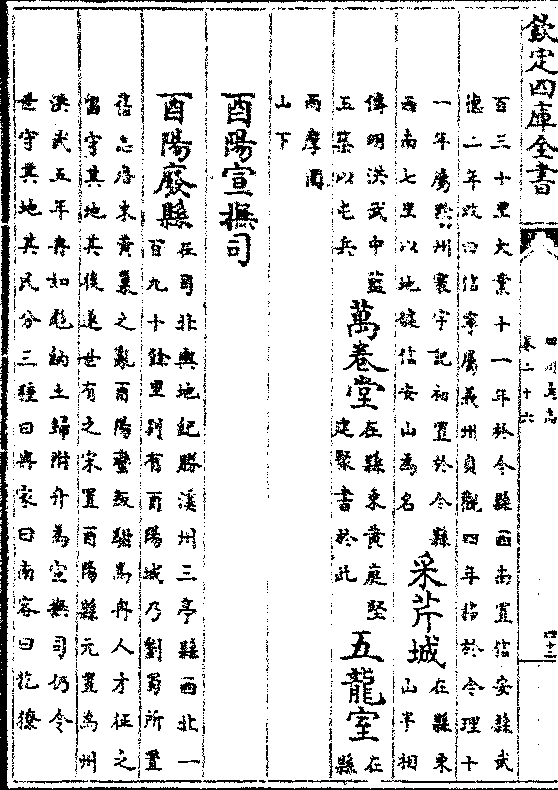 欽定四庫全書
四川通志
卷二十六
四十三
百三十里大業十一年於今縣西南置信安縣武
德二年改曰信寧屬義州貞觀四年移於今理十
一年屬黔州寰宇記初置於今縣
西南七里以地據信安山為名
采芹城
在縣東
山半相
傳明洪武中藍
玉築以屯兵
萬卷堂
在縣東黄庭堅
建聚書於此
五龍室
在
縣
西摩圍
山下
酉陽宣撫司
酉陽廢縣
在司北輿地紀勝溪州三亭縣西北一
百九十餘里别有酉陽城乃劉蜀所置
志唐末黄巢之亂酉陽蠻叛駙馬冉人才征之
留守其地其後遂世有之宋置酉陽縣元置為州
洪武五年冉如彪納土歸附升為宣撫司仍令
世守其地其民分三種曰冉家曰南客曰犵獠